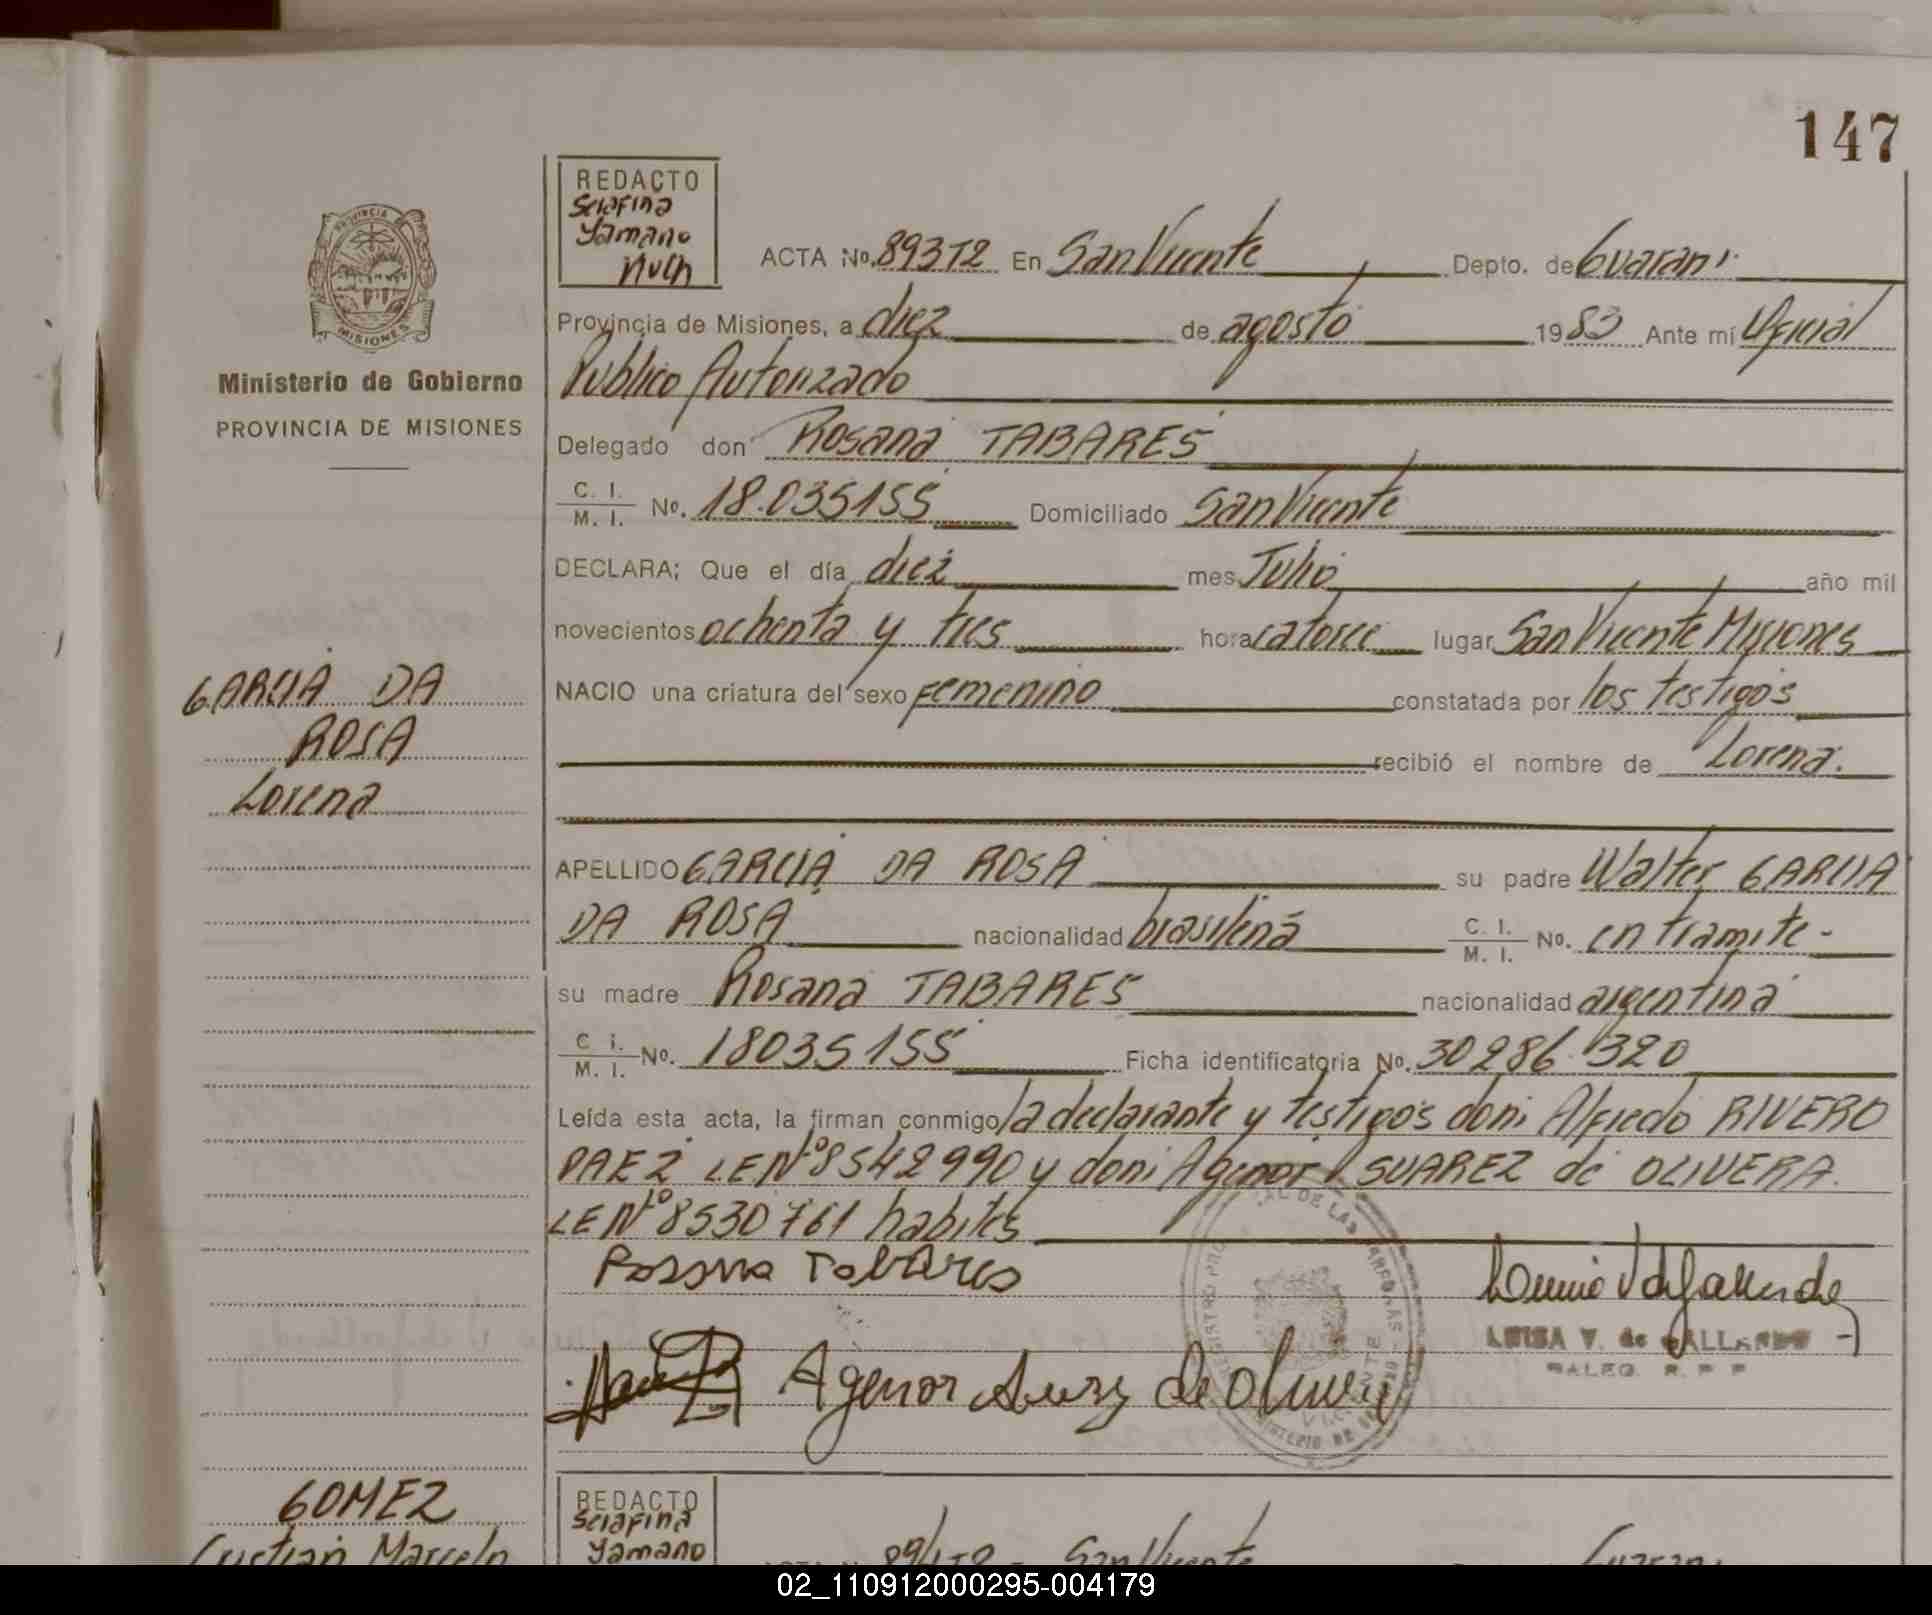 147
REDACTO
Serafina
Yamano
ACTA No. 893T2 En San Vicente Depto. de Guarani
Provincia de Misiones, a diez de agosto 1983 Ante mí Oficial
Publico Autorizado
Delegado don Rosana TABARES
C. I. / M. I. No. 18.035155 Domiciliado San Vicente
DECLARA; Que el día diez mes Julio año mil
novecientos ochenta y tres hora catorce lugar San Vicente Misiones
NACIO una criatura del sexo Femenino constatada por los testigos
recibió el nombre de Lorena.
APELLIDO GARCIA DA ROSA su padre Walter GARCIA
DA ROSA nacionalidad brasilena C. I. / M. I. No. en tramite-
su madre Rosana TABARES nacionalidad argentina
C i. / M. I. No. 18035155 Ficha identificatoria No. 30286.320
Leída esta acta, la firman conmigo la declarante y testigos don: Alfredo RIVERO
PAEZ LE Nº 8542990 y don: Agenor SUAREZ de OLIVERA.
LE Nº 8530761 habiles
Rosana Tabares
LUISA V. de GALLARDO
DALEG. R. P. P
Agenor Suarez de Olivera
PROVINCIA DE
MISIONES
Ministerio de Gobierno
PROVINCIA DE MISIONES
GARCIA DA
ROSA
Lorena
GOMEZ
Cristian Marcelo
REDACTO
Serafina
Yamano
San Vicente
Guarani
02_110912000295-004179